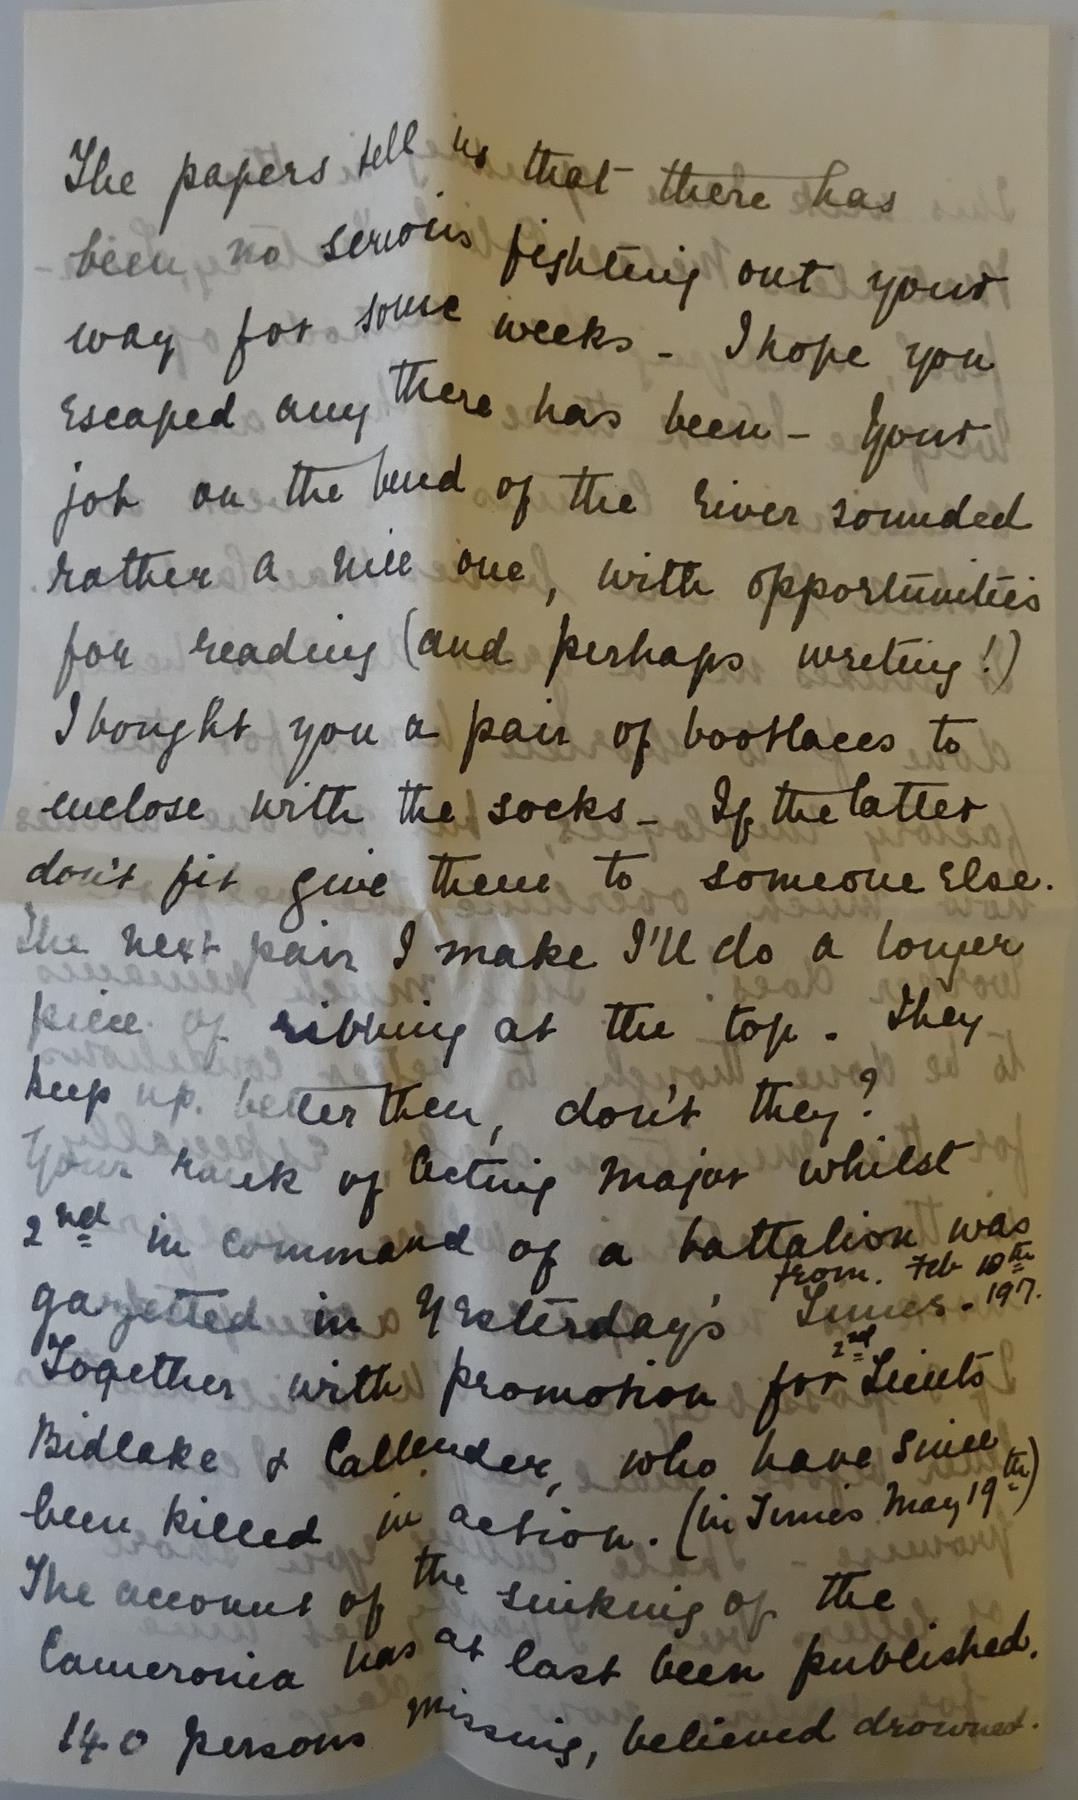 The papers tell us that there has
been no serious fighting out your
way for some weeks - I hope you
escaped any there has been - Your
job on the bend of the river sounded
rather a nice one, with opportunities
for reading (and perhaps writing!)
I bought you a pair of bootlaces to
enclose with the socks - If the latter
don't fit give them to someone else.
The next pair I make I'll do a longer
piece of ribbing at the top. They
keep up better then, don't they?
Your rank of Acting Major whilst
2nd in command of a battalion was
from. Feb 10th
gazetted in Yesterday's Times - 197.
Together with promotion for 2nd Lieuts
Bidlake & Callender, who have since
been killed in action. (in Times May 19th)
The account of the sinking of the
Cameronia has at last been published.
140 persons missing, believed drowned.